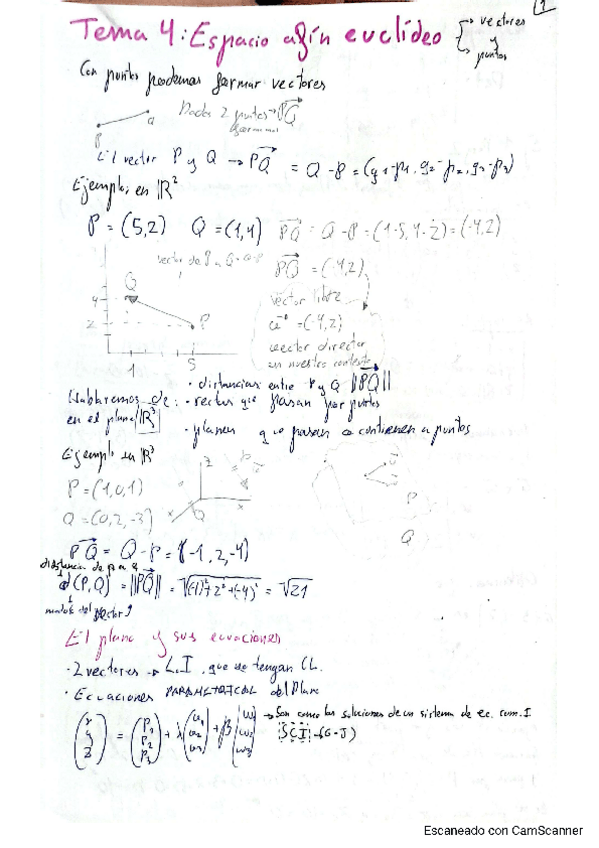 1
Tema 4: Espacio afín euclídeo → vectores y puntos
Con puntos podemos formar vectores
Dados 2 puntos → PQ
P Q
El vector P y Q → PQ = Q - P = (q1-p1, q2-p2, q3-p3)
Ejemplo: en |R²
P = (5,2) Q = (1,4) PQ = Q - P = (1-5, 4-2) = (-4,2)
vector de P a Q = Q-P
PQ = (-4,2)
vector libre
u = (-4,2)
vector director
en nuestro contexto
Q
4
2
P
1 5
Hablaremos de:
en el plano |R³
· distancias entre P y Q ||PQ||
· rectas que pasan por puntos
· planos que pasan o contienen a puntos
Ejemplo en |R³
P = (1,0,1)
Q = (0,2,-3)
z
x
P
Q
PQ = Q - P = (-1, 2, -4)
distancia de P a Q
d(P,Q) = ||PQ|| = √(-1)²+2²+(-4)² = √21
módulo del vector
El plano y sus ecuaciones
· 2 vectores → L.I, que no tengan CL.
· Ecuaciones PARAMETRICAS del Plano
(x y z) = (P1 P2 P3) + λ (u1 u2 u3) + β (w1 w2 w3) → Son como las soluciones de un sistema de ec. com. I
SCI - (G-J)
Escaneado con CamScanner